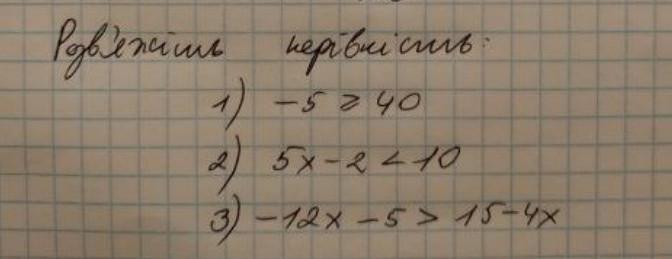 Розв'яжіть нерівність:
1) -5 ≥ 40
2) 5x - 2 < 10
3) -12x - 5 > 15 - 4x